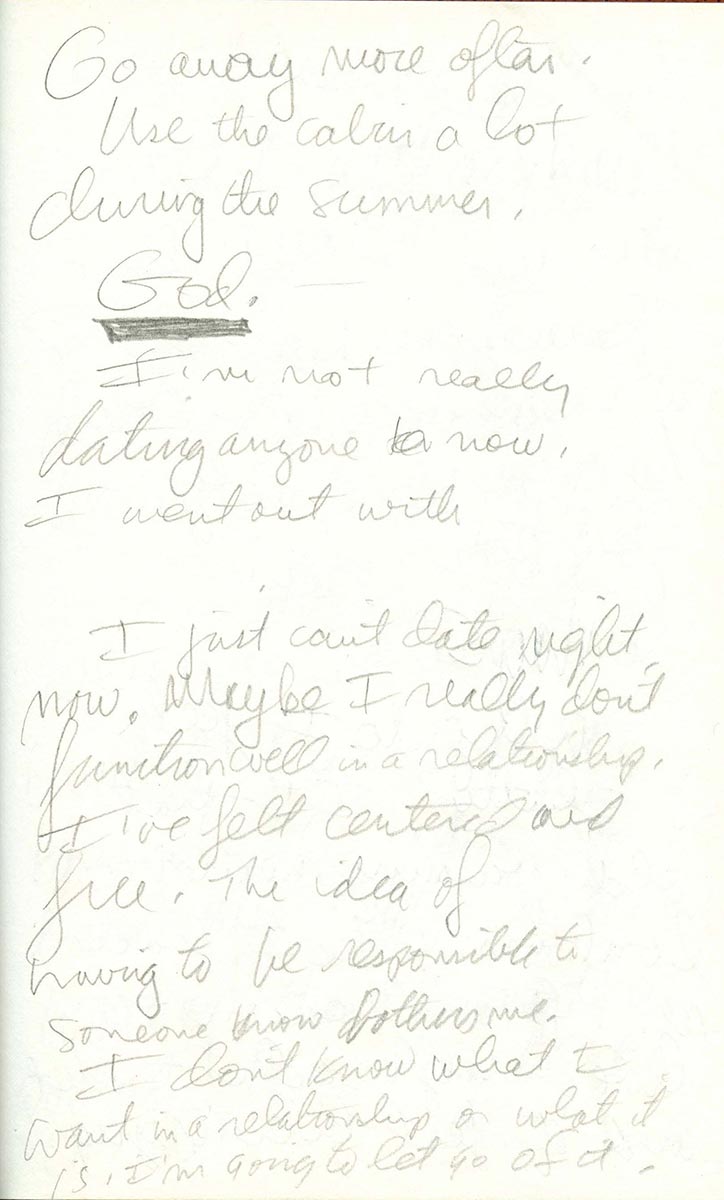 Go away more often.
Use the cabin a lot
during the summer.
God.
I'm not really
dating anyone now.
I went out with
I just can't date right
now. Maybe I really don't
function well in a relationship.
I've felt centered and
free. The idea of
having to be responsible to
someone know bothers me.
I don't know what I
want in a relationship or what it
is. I'm going to let go of it.